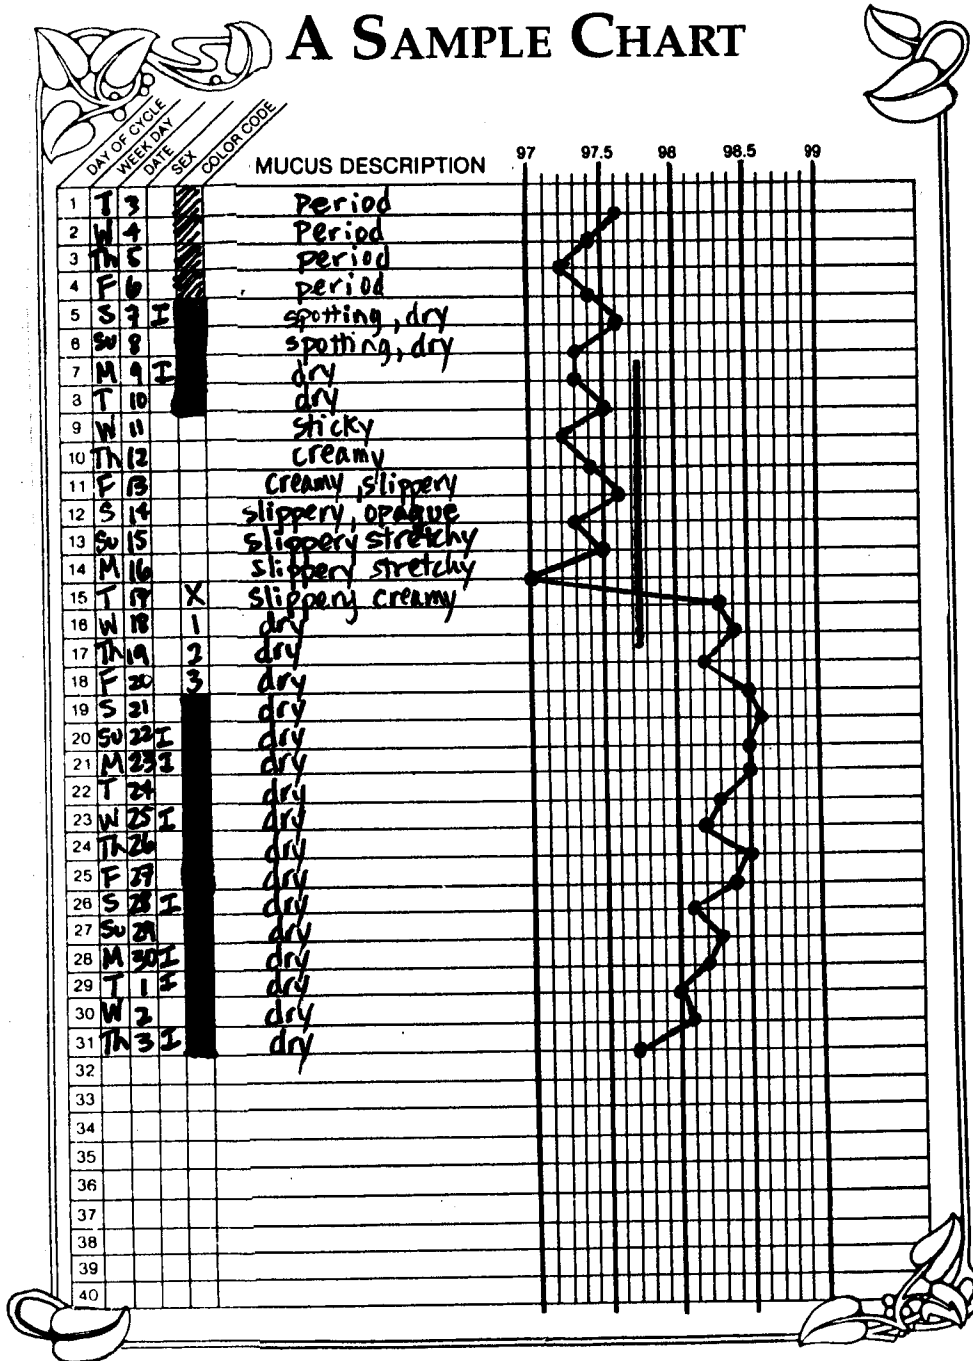 A SAMPLE CHART
DAY OF CYCLE WEEK DAY DATE SEX COLOR CODE MUCUS DESCRIPTION 97 97.5 98 98.5 99
1 T 3 Period
2 W 4 Period
3 Th 5 period
4 F 6 period
5 S 7 I spotting, dry
6 Su 8 spotting, dry
7 M 9 I dry
8 T 10 dry
9 W 11 sticky
10 Th 12 creamy
11 F 13 creamy, slippery
12 S 14 slippery, opaque
13 Su 15 slippery stretchy
14 M 16 slippery stretchy
15 T 17 X slippery creamy
16 W 18 1 dry
17 Th 19 2 dry
18 F 20 3 dry
19 S 21 dry
20 Su 22 I dry
21 M 23 I dry
22 T 24 dry
23 W 25 I dry
24 Th 26 dry
25 F 27 dry
26 S 28 I dry
27 Su 29 dry
28 M 30 I dry
29 T 1 I dry
30 W 2 dry
31 Th 3 I dry
32
33
34
35
36
37
38
39
40